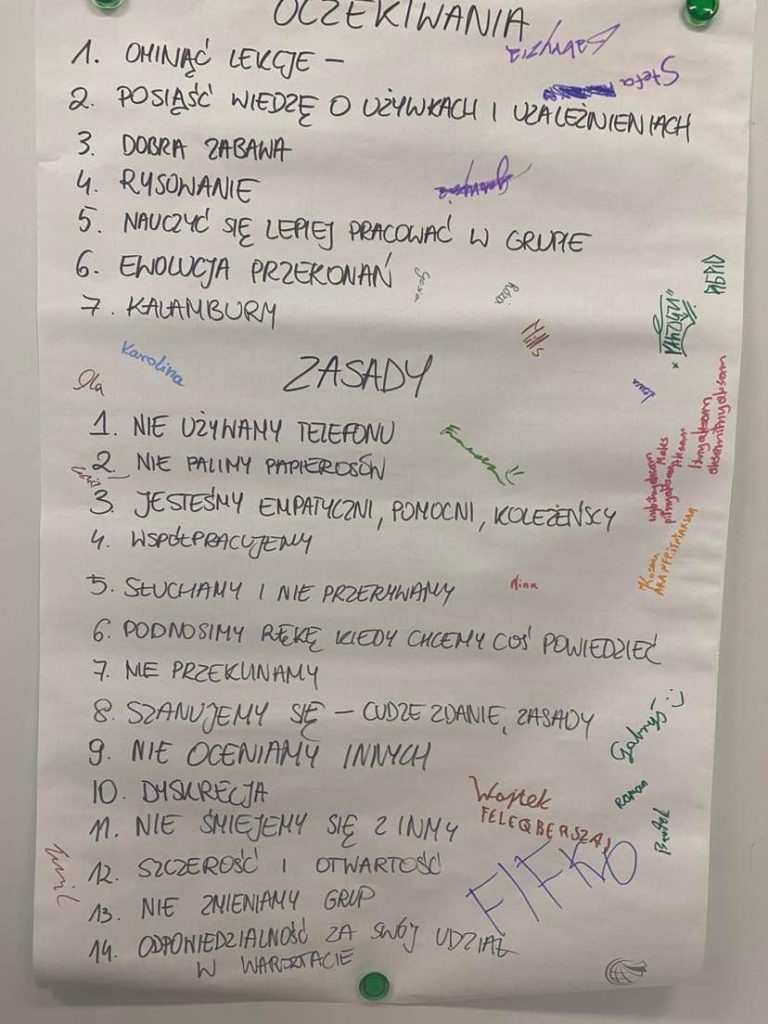 OCZEKIWANIA
1. OMINĄĆ LEKCJE –
Stefa
2. POSIĄŚĆ WIEDZĘ O UŻYWKACH I UZALEŻNIENIACH
3. DOBRA ZABAWA
4. RYSOWANIE
5. NAUCZYĆ SIĘ LEPIEJ PRACOWAĆ W GRUPIE
6. EWOLUCJA PRZEKONAŃ
7. KALAMBURY
Karolina
Ola
ZASADY
1. NIE UŻYWAMY TELEFONU
2. NIE PALIMY PAPIEROSÓW
3. JESTEŚMY EMPATYCZNI, POMOCNI, KOLEŻEŃSCY
4. WSPÓŁPRACUJEMY
5. SŁUCHAMY I NIE PRZERYWAMY
Nina
6. PODNOSIMY RĘKĘ KIEDY CHCEMY COŚ POWIEDZIEĆ
7. NIE PRZEKLINAMY
8. SZANUJEMY SIĘ – CUDZE ZDANIE, ZASADY
9. NIE OCENIAMY INNYCH
10. DYSKRECJA
Wojtek
Roman
11. NIE ŚMIEJEMY SIĘ Z INNY
12. SZCZEROŚĆ I OTWARTOŚĆ
FIFKO
13. NIE ZMIENIAMY GRUP
14. ODPOWIEDZIALNOŚĆ ZA SWÓJ UDZIAŁ
W WARSZTACIE